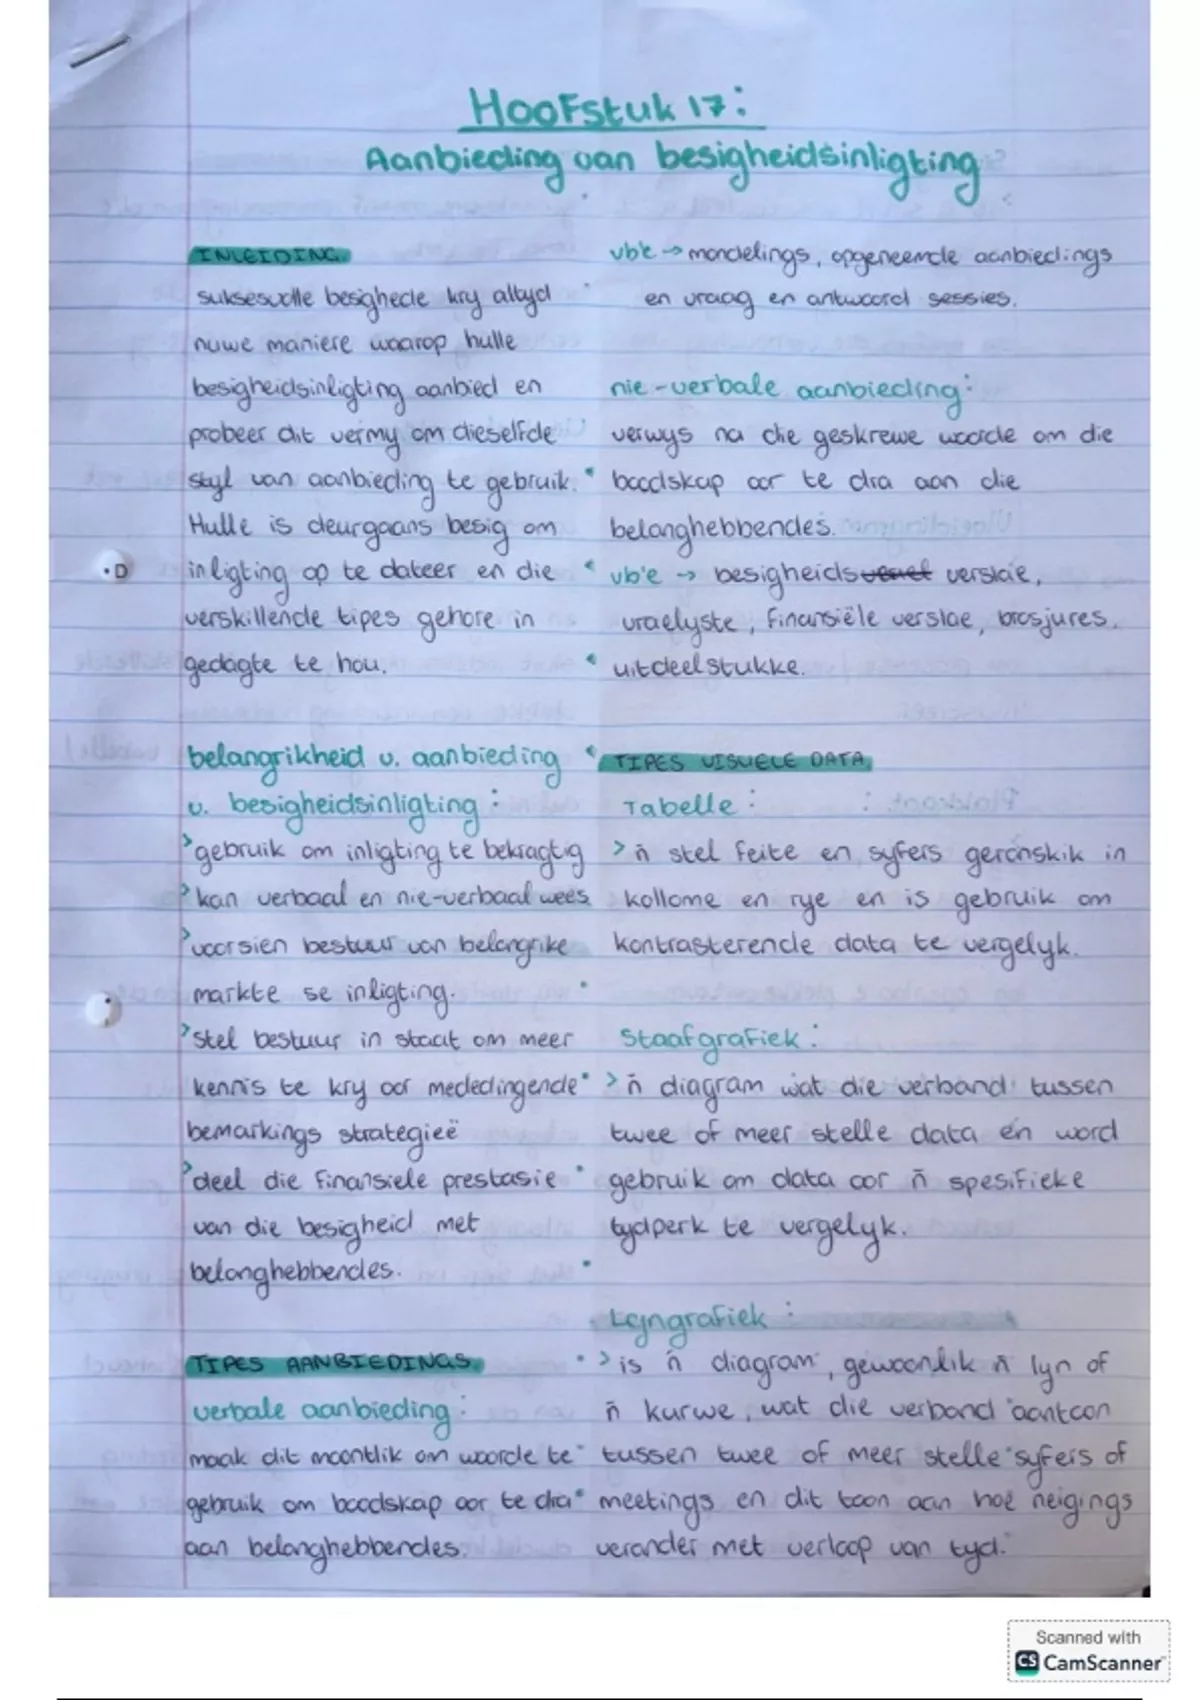 Hoofstuk 17:
Aanbieding van besigheidsinligting
INLEIDING
suksesvolle besighede kry altyd
nuwe maniere waarop hulle
besigheidsinligting aanbied en
probeer dit vermy om dieselfde
styl van aanbieding te gebruik.
Hulle is deurgaans besig om
inligting op te dateer en die
verskillende tipes gehore in
gedagte te hou.
belangrikheid v. aanbieding
v. besigheidsinligting:
> gebruik om inligting te bekragtig
> kan verbaal en nie-verbaal wees
> voorsien bestuur van belangrike
markte se inligting.
> stel bestuur in staat om meer
kennis te kry oor mededingende
bemarkings strategieë
> deel die finansiele prestasie
van die besigheid met
belanghebbendes.
TIPES AANBIEDINGS
verbale aanbieding:
maak dit moontlik om woorde te
gebruik om boodskap oor te dra
aan belanghebbendes.
vb'e → mondelings, opgeneemde aanbiedings
en vraag en antwoord sessies.
nie-verbale aanbieding:
verwys na die geskrewe woorde om die
boodskap oor te dra aan die
belanghebbendes.
vb'e → besigheids verslae,
vraelyste, finansiële verslae, brosjures,
uitdeelstukke.
TIPES VISUELE DATA
Tabelle:
> ñ stel feite en syfers gerangskik in
kollome en rye en is gebruik om
kontrasterende data te vergelyk.
Staafgrafiek:
> ñ diagram wat die verband tussen
twee of meer stelle data en word
gebruik om data oor ñ spesifieke
tydperk te vergelyk.
Lyngrafiek:
> is ñ diagram, gewoonlik ñ lyn of
ñ kurwe, wat die verband aantoon
tussen twee of meer stelle syfers of
meetings en dit toon aan hoe neigings
verander met verloop van tyd.
Scanned with
CS CamScanner